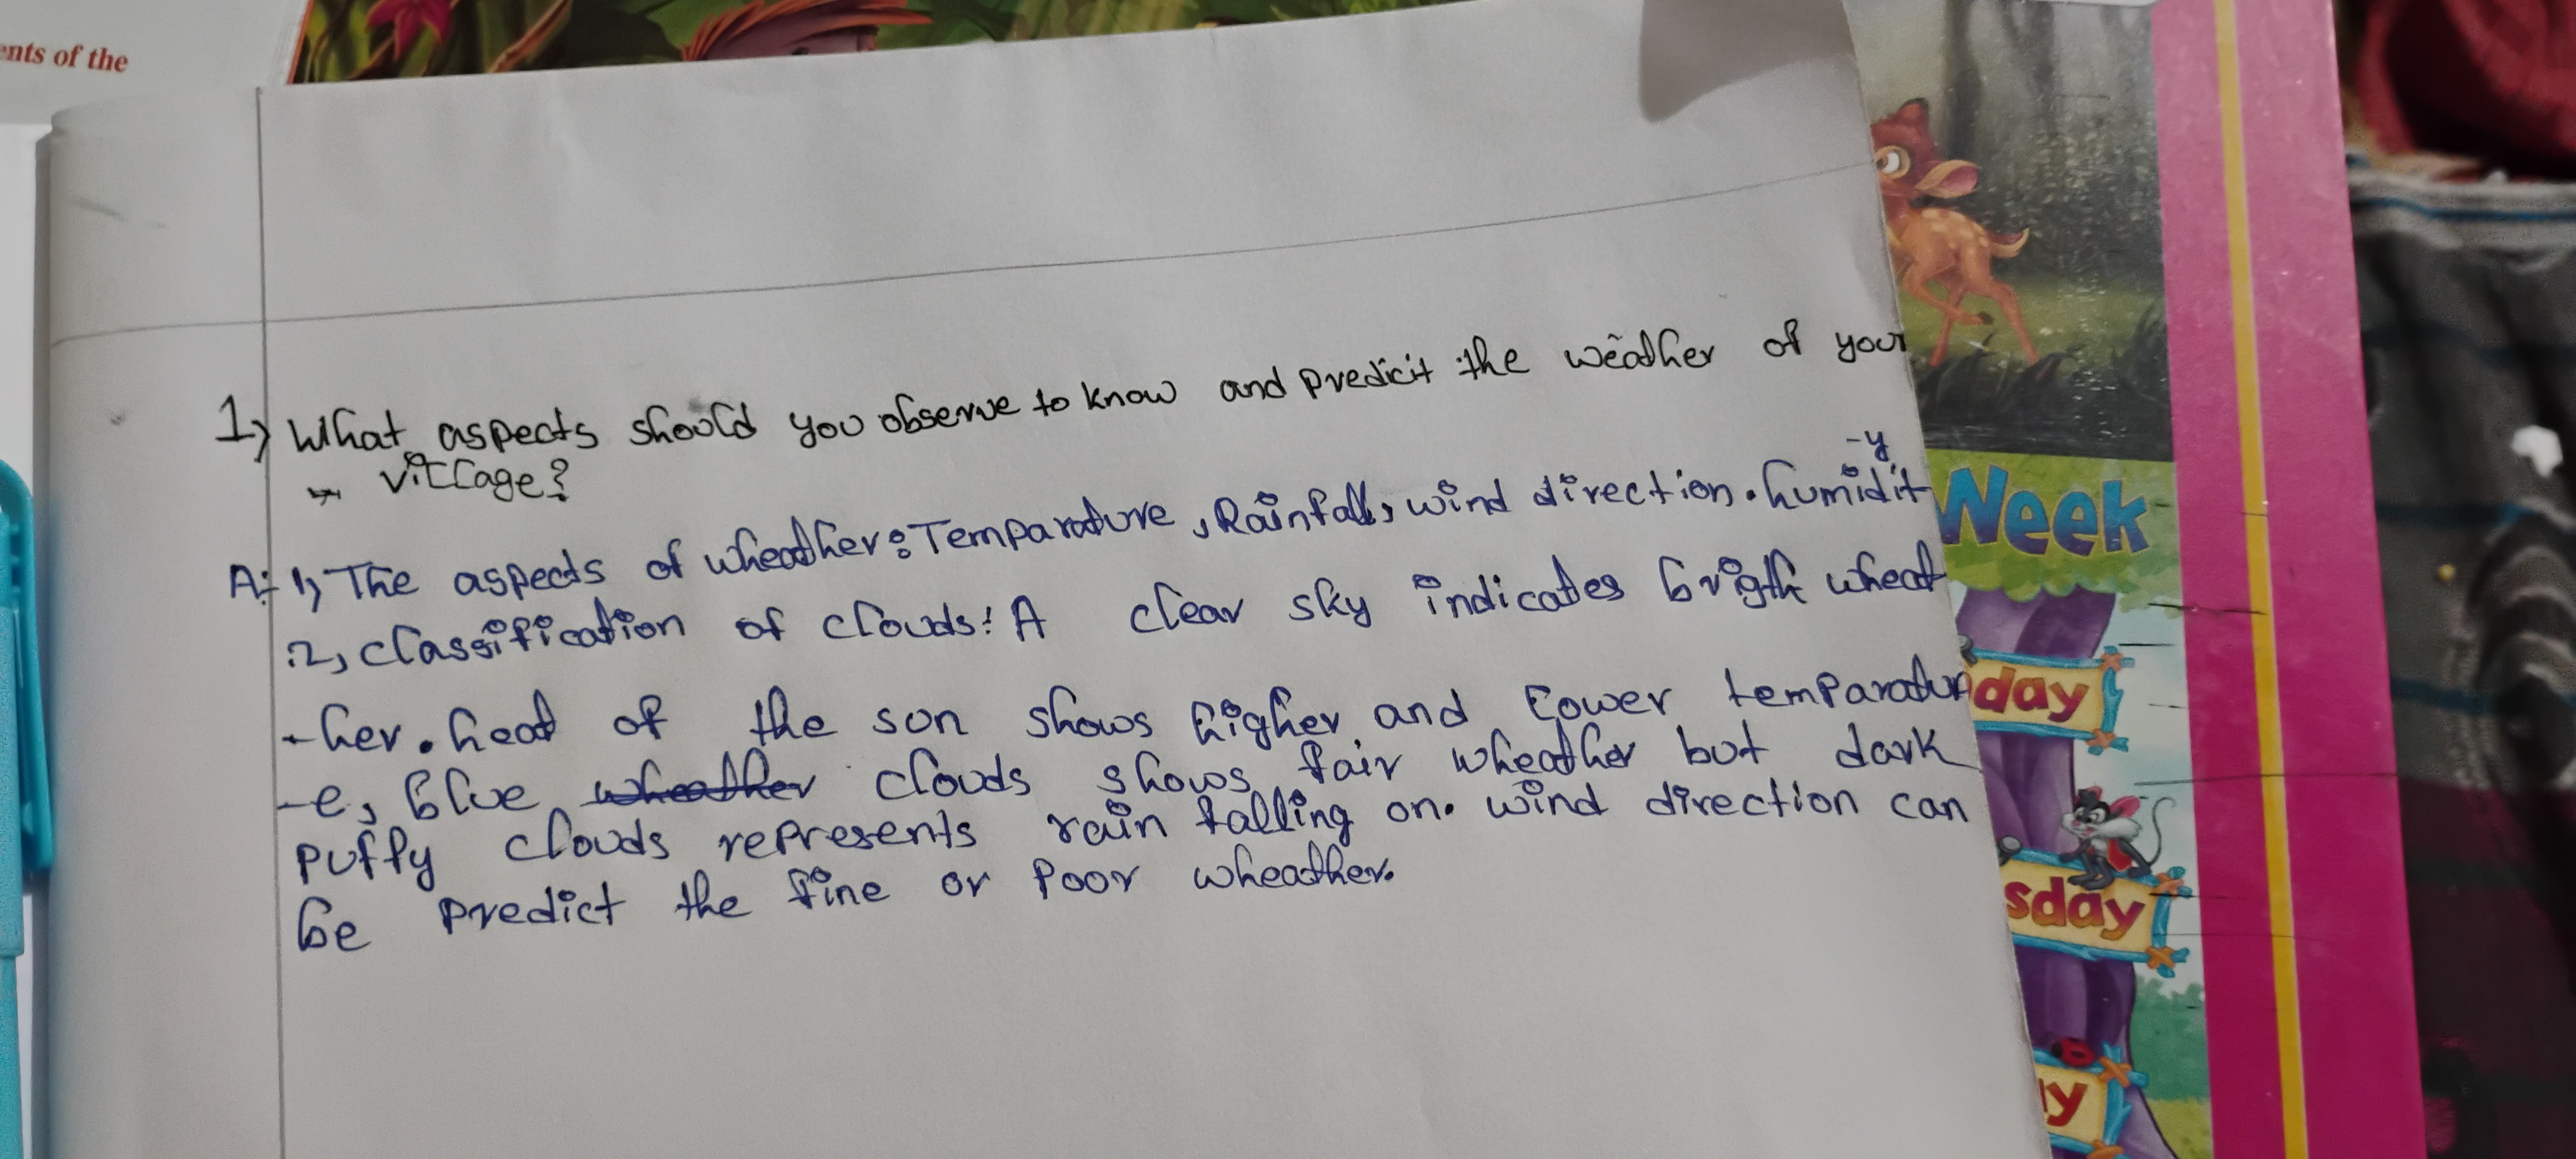 ents of the
1) What aspects should you observe to know and predicit the weather of your
village?
A: 1) The aspects of wheather: Temparature, Rainfall, wind direction. humidit
-y
2, classification of clouds: A clear sky indicates brigth wheat
-her. heat of the son shows higher and lower temparatur
-e, blue wheather clouds shows fair wheather but dark
puffy clouds represents rain falling on. wind direction can
be predict the fine or poor wheather.
Week
day
sday
y